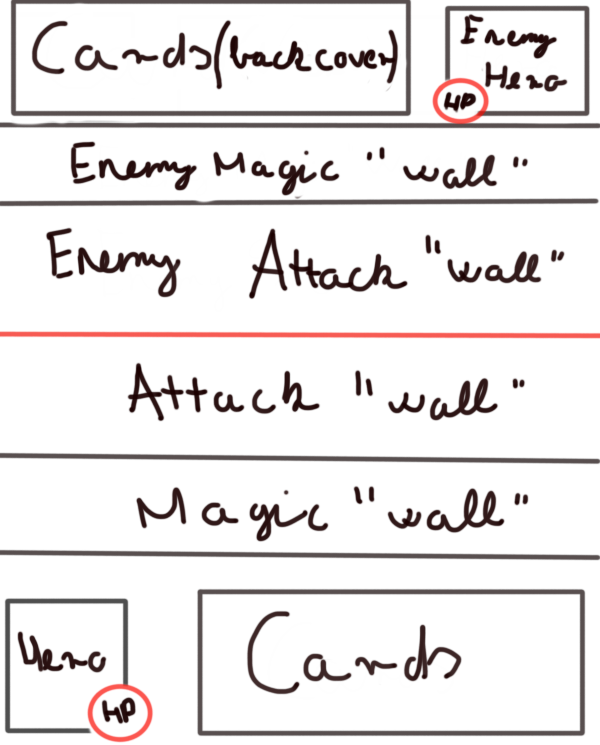 Cards (back cover)
Enemy
Hero
HP
Enemy Magic "wall"
Enemy Attack "wall"
Attack "wall"
Magic "wall"
Hero
HP
Cards